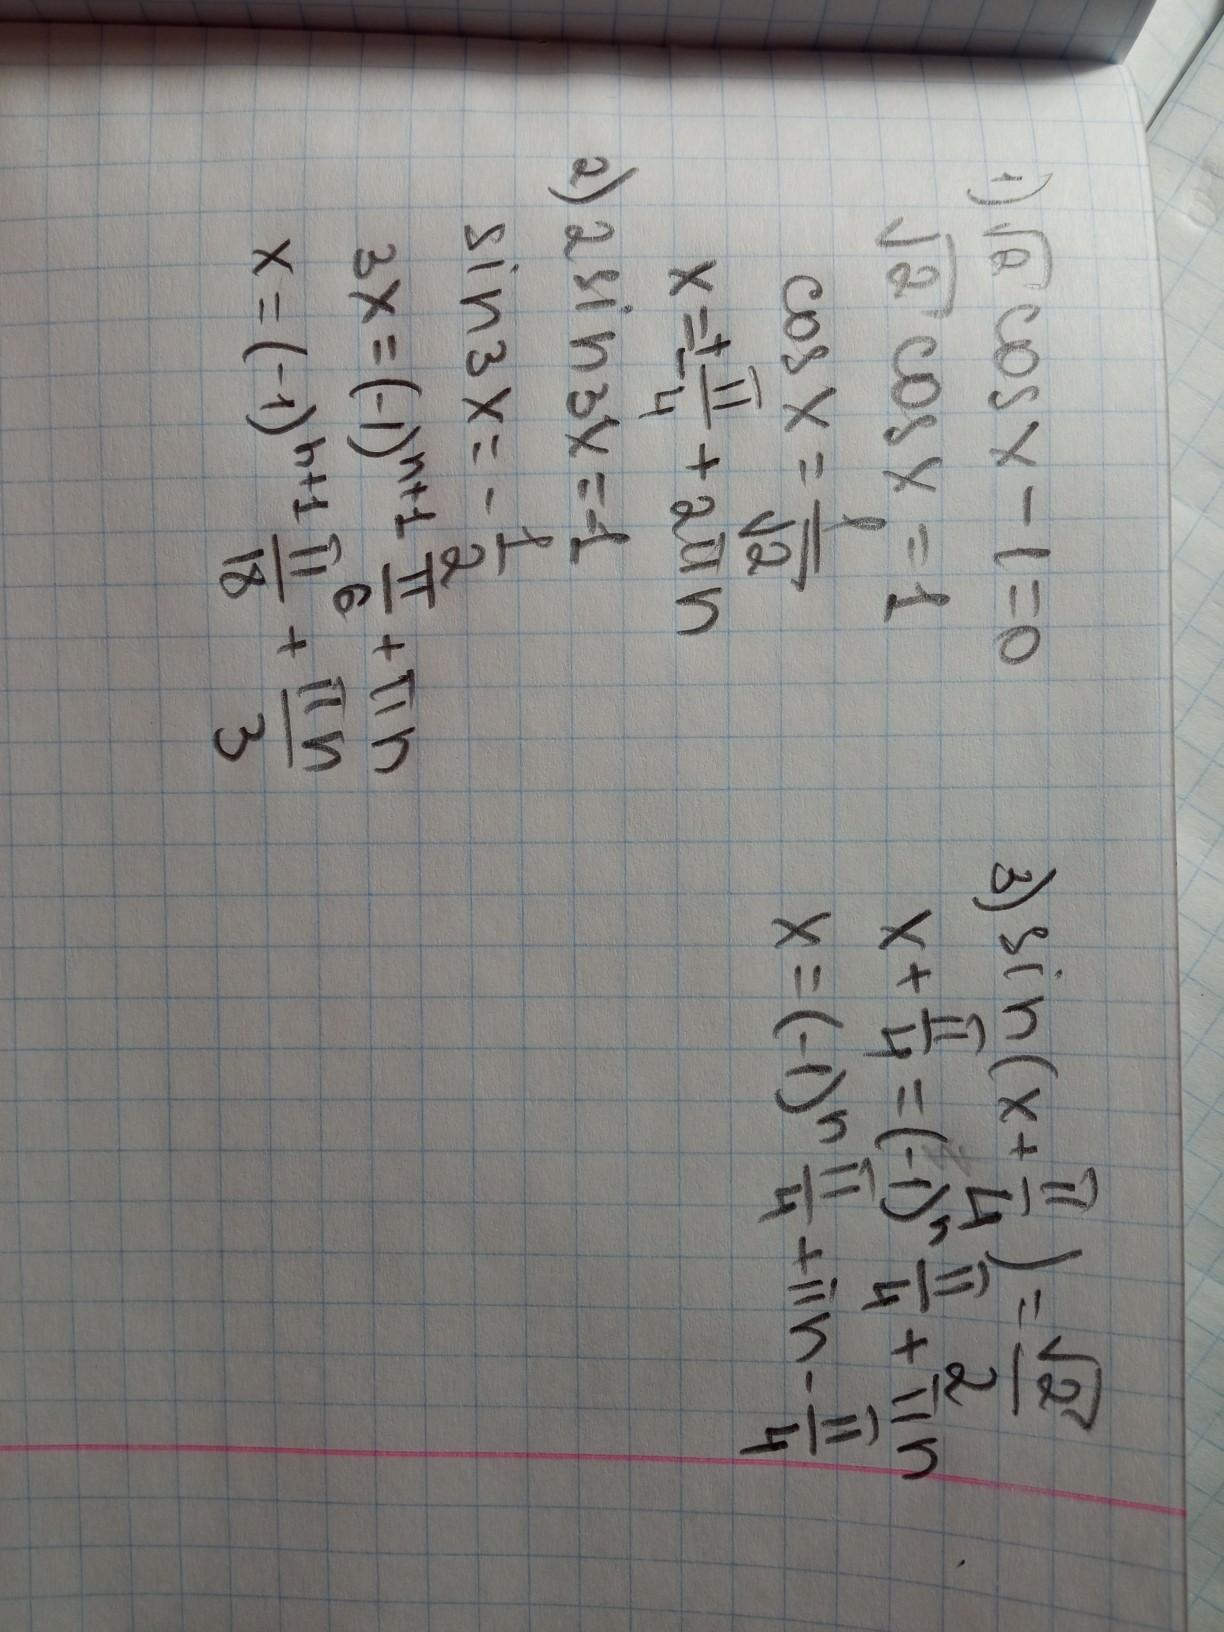 1) √2 cos x − 1 = 0
√2 cos x = 1
cos x = 1/√2
x = ± π/4 + 2πn
2) 2 sin 3x = -1
sin 3x = - 1/2
3x = (-1)^(n+1) π/6 + πn
x = (-1)^(n+1) π/18 + πn/3
3) sin (x + π/4) = √2/2
x + π/4 = (-1)^n π/4 + πn
x = (-1)^n π/4 + πn - π/4